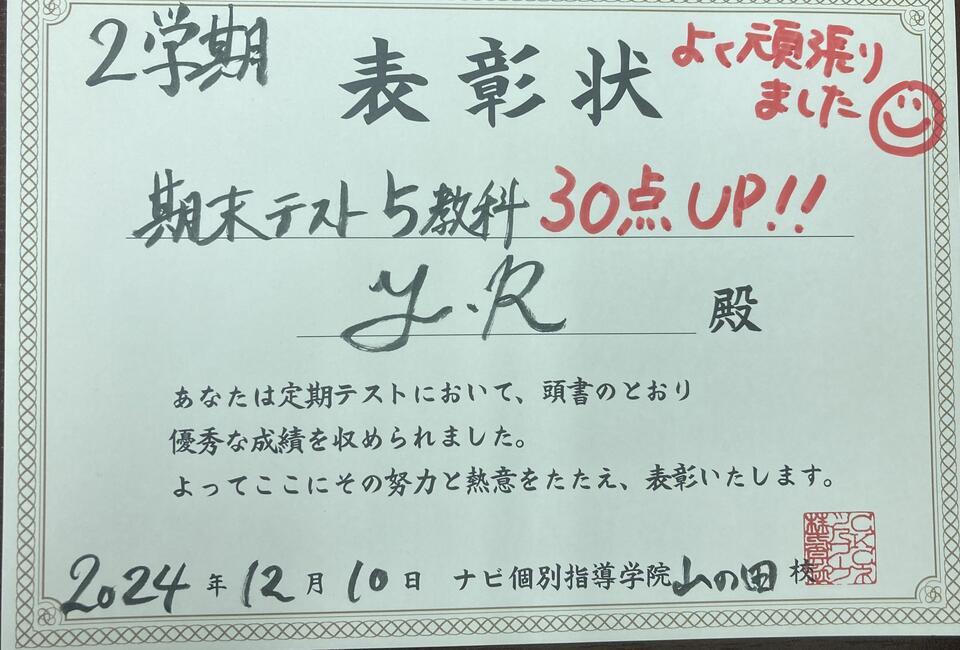 2学期
表彰状
よく頑張り
ました
期末テスト5教科 30点UP!!
Y.R 殿
あなたは定期テストにおいて、頭書のとおり
優秀な成績を収められました。
よってここにその努力と熱意をたたえ、表彰いたします。
2024年12月10日 ナビ個別指導学院山の田校